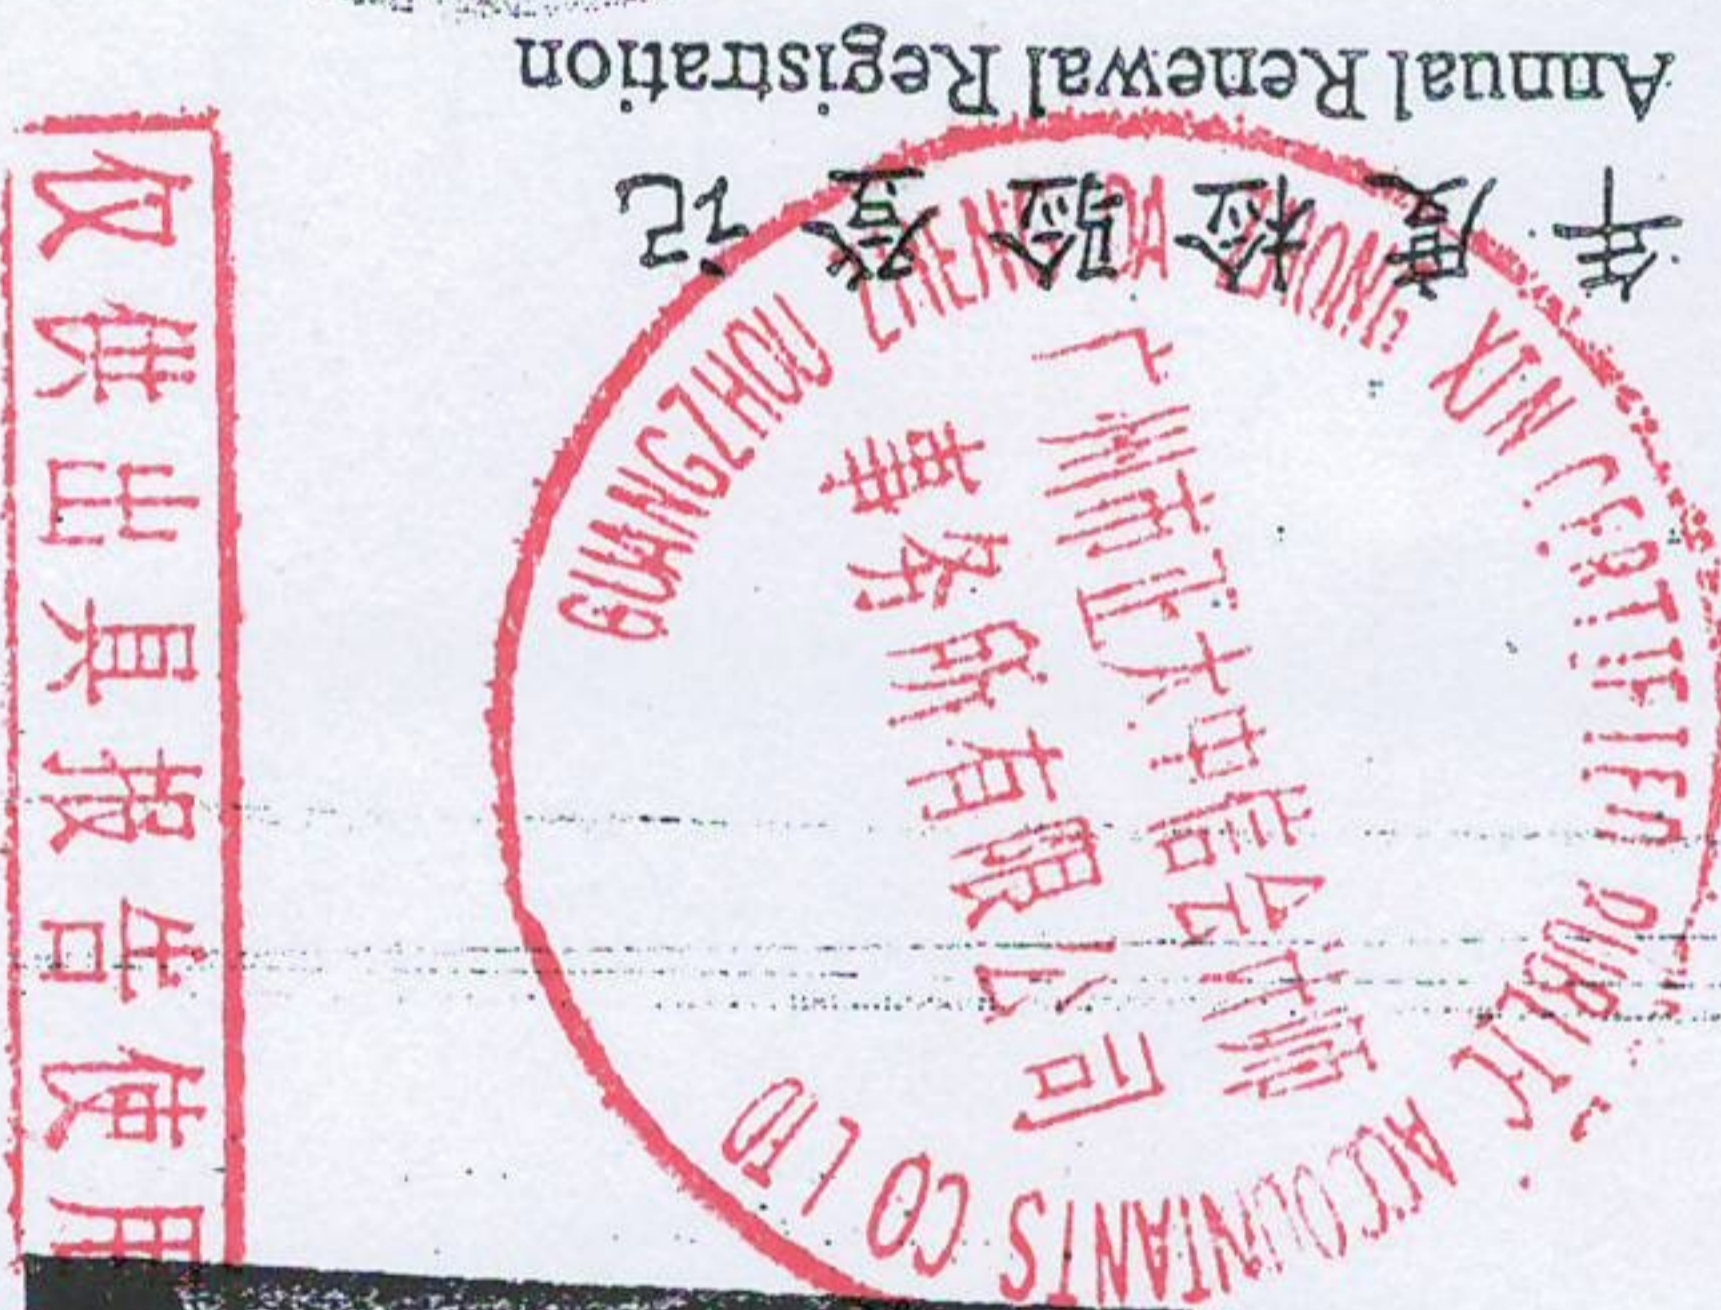 年度检验登记
Annual Renewal Registration
GUANGZHOU ZHENGDA ZHONG XIN CERTIFIED PUBLIC ACCOUNTANTS CO LTD
广州市正大中信会计师
事务所有限公司
仅供出具报告使用